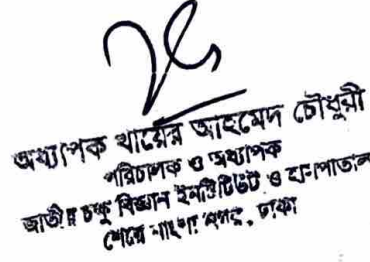 অধ্যাপক খায়ের আহমেদ চৌধুরী
পরিচালক ও অধ্যাপক
জাতীয় চক্ষু বিজ্ঞান ইনস্টিটিউট ও হাসপাতাল
শেরে বাংলা নগর, ঢাকা